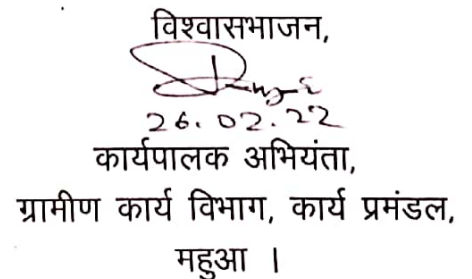 विश्वासभाजन,
26.02.22
कार्यपालक अभियंता,
ग्रामीण कार्य विभाग, कार्य प्रमंडल,
महुआ ।